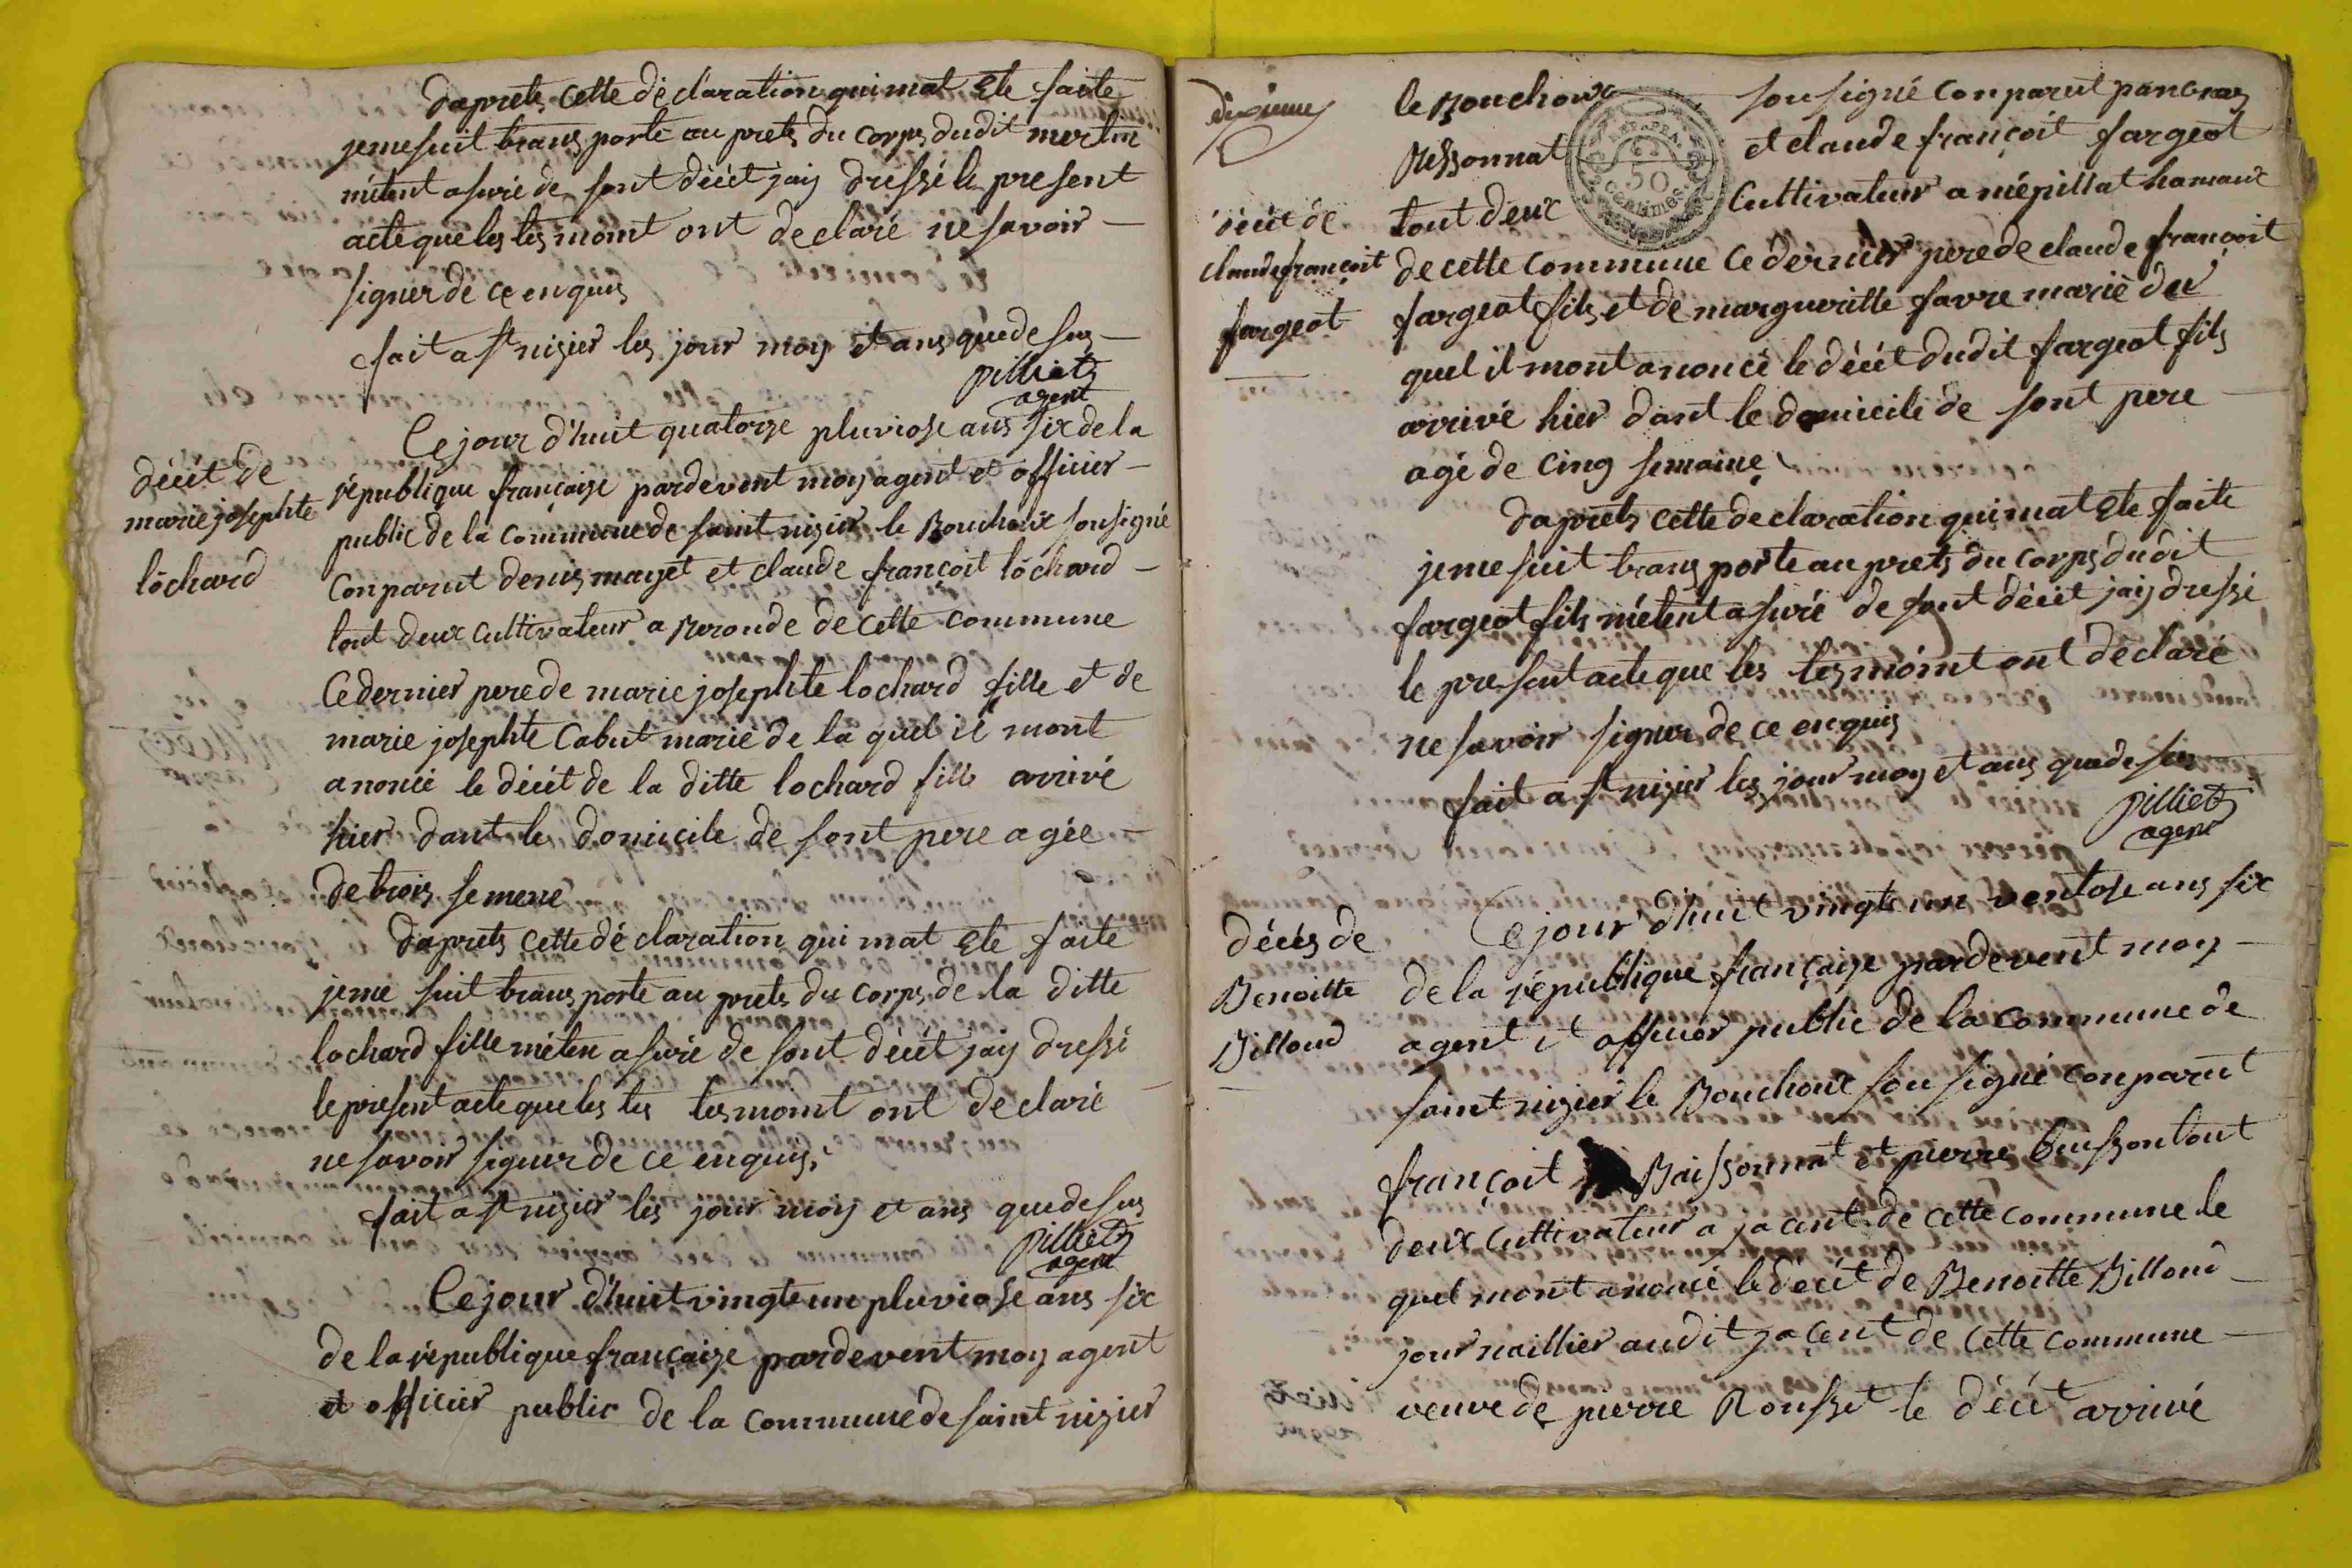 daprets cette déclaration qui mat Ete faite
jeme suit transporté au prets du corps dudit merlin
métent asuré de sont décét jaij dressé le present
acte que les tesmoint ont declaré ne savoir
signer de ce enquis
fait a st nizier les jour mois et ans que de sus
pilliet
agent
décét de
marie josephte
lochard
Ce jour d'huit quatorze pluviose ans six de la
république françaize pardevent moy agent et officier
public de la commune de saint nizier le Bouchoux sousigné
Conparut denis mayet et claude françoit lochard
tout deux cultivateur a Peronde de cette commune
Ce dernier pere de marie josephte lochard fille et de
marie josephte Cabut marié de la quel il mont
anoncé le décét de la ditte lochard fille arrivé
hier dant le domicile de sont pere agée
de trois semene
daprets cette déclaration qui mat Ete faite
jeme suit transporté au prets du corps de la ditte
lochard fille méten asuré de sont décét jaij dressé
le present acte que les tes tesmoint ont declaré
ne savoir signer de ce enquis
fait a st nizier les jour mois et ans que de sus
pilliet
agent
Ce jour d'huit vingte un pluviose ans six
de la république françaize pardevent moy agent
et officier public de la commune de saint nizier
dixiême
le Bouchoux sousigné Conparut pancras
Messonnat et claude françoit fargeot
tout deux Cultivateur a mépillat hamaux
50
Centimes
décét de
claude françoit
fargeot
de cette commune ce dernier pere de claude françoit
fargeot fils et de margueritte favre marié du
quel il mont anoncé le décét dudit fargeot fils
arrivé hier dant le domicile de sont pere
agé de cinq semaine
daprets cette declaration qui mat Ete faite
jeme suit transporté au prets du corps dudit
fargeot fils métent asuré de sont décét jaij dressé
le present acte que les tesmoint ont déclaré
ne savoir signer de ce enquis
fait a st nizier les jour moy et ans que de sus
pilliet
agent
décés de
Benoitte
Billoud
Ce jour d'huit vingte un ventose ans six
de la république françaize pardevent moy
agent et officier public de la commune de
saint nizier le Bouchoux sousigné conparut
françoit Baissonnat et pierre buisson tout
deux cultivateur a jacent de cette commune le
quel mont anoncé le décét de Benoitte Billoud
journaillier audit jacent de cette commune
veuve de pierre Rousset le décét arrivé